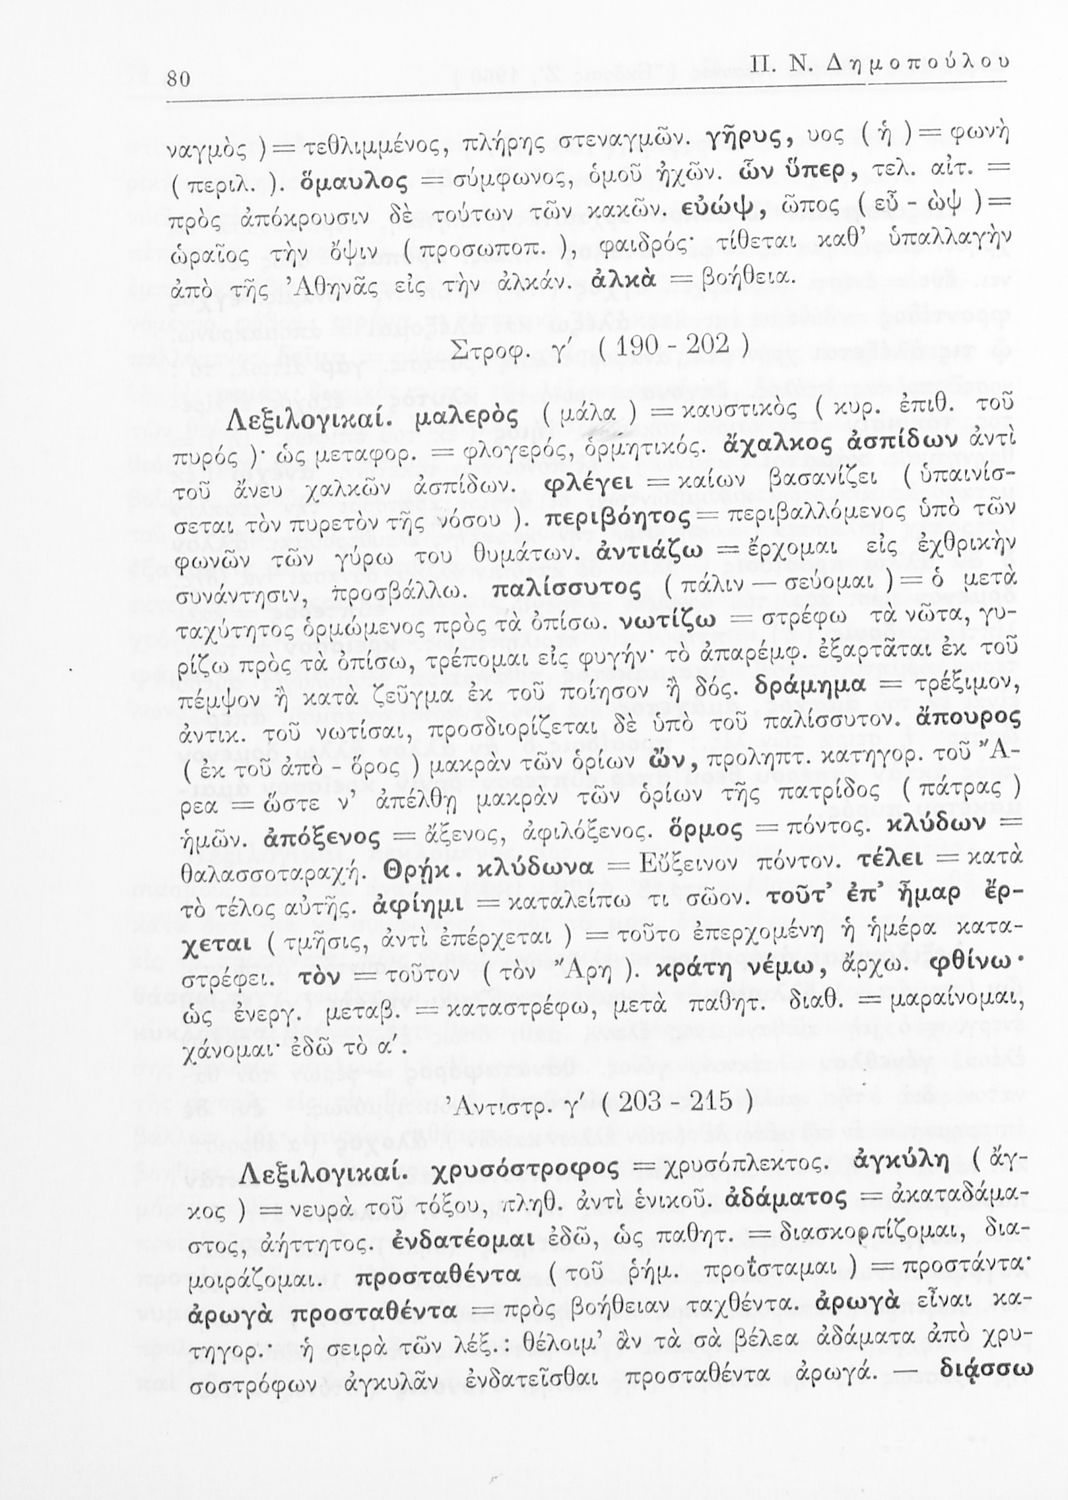 80
Π. Ν. Δημοπούλου
ναγμὸς ) = τεθλιμμένος, πλήρης στεναγμῶν. γῆρυς, υος ( ἡ ) = φωνὴ
( περιλ. ). ὅμαυλος = σύμφωνος, ὁμοῦ ἠχῶν. ὧν ὕπερ, τελ. αἰτ. =
πρὸς ἀπόκρουσιν δὲ τούτων τῶν κακῶν. εὐώψ, ῶπος ( εὖ - ὢψ ) =
ὡραῖος τὴν ὄψιν ( προσωποπ. ), φαιδρός· τίθεται καθ’ ὑπαλλαγὴν
ἀπὸ τῆς Ἀθηνᾶς εἰς τὴν ἀλκάν. ἀλκὰ = βοήθεια.
Στροφ. γ′ ( 190 - 202 )
Λεξιλογικαί. μαλερὸς ( μάλα ) = καυστικὸς ( κυρ. ἐπιθ. τοῦ
πυρός )· ὡς μεταφορ. = φλογερός, ὁρμητικός. ἄχαλκος ἀσπίδων ἀντὶ
τοῦ ἄνευ χαλκῶν ἀσπίδων. φλέγει = καίων βασανίζει ( ὑπαινίσ-
σεται τὸν πυρετὸν τῆς νόσου ). περιβόητος = περιβαλλόμενος ὑπὸ τῶν
φωνῶν τῶν γύρω του θυμάτων. ἀντιάζω = ἔρχομαι εἰς ἐχθρικὴν
συνάντησιν, προσβάλλω. παλίσσυτος ( πάλιν — σεύομαι ) = ὁ μετὰ
ταχύτητος ὁρμώμενος πρὸς τὰ ὀπίσω. νωτίζω = στρέφω τὰ νῶτα, γυ-
ρίζω πρὸς τὰ ὀπίσω, τρέπομαι εἰς φυγήν· τὸ ἀπαρέμφ. ἐξαρτᾶται ἐκ τοῦ
πέμψον ἢ κατὰ ζεῦγμα ἐκ τοῦ ποίησον ἢ δός. δράμημα = τρέξιμον,
ἀντικ. τοῦ νωτίσαι, προσδιορίζεται δὲ ὑπὸ τοῦ παλίσσυτον. ἄπουρος
( ἐκ τοῦ ἀπὸ - ὅρος ) μακρὰν τῶν ὁρίων ὤν, προληπτ. κατηγορ. τοῦ Ἄ-
ρεα = ὥστε ν’ ἀπέλθῃ μακρὰν τῶν ὁρίων τῆς πατρίδος ( πάτρας )
ἡμῶν. ἀπόξενος = ἄξενος, ἀφιλόξενος. ὅρμος = πόντος. κλύδων =
θαλασσοταραχή. Θρῄκ. κλύδωνα = Εὔξεινον πόντον. τέλει = κατὰ
τὸ τέλος αὐτῆς. ἀφίημι = καταλείπω τι σῶον. τοῦτ’ ἐπ’ ἦμαρ ἔρ-
χεται ( τμῆσις, ἀντὶ ἐπέρχεται ) = τοῦτο ἐπερχομένη ἡ ἡμέρα κατα-
στρέφει. τὸν = τοῦτον ( τὸν Ἄρη ). κράτη νέμω, ἄρχω. φθίνω·
ὡς ἐνεργ. μεταβ. = καταστρέφω, μετὰ παθητ. διαθ. = μαραίνομαι,
χάνομαι· ἐδῶ τὸ α′.
Ἀντιστρ. γ′ ( 203 - 215 )
Λεξιλογικαί. χρυσόστροφος = χρυσόπλεκτος. ἀγκύλη ( ἄγ-
κος ) = νευρὰ τοῦ τόξου, πληθ. ἀντὶ ἑνικοῦ. ἀδάματος = ἀκαταδάμα-
στος, ἀήττητος. ἐνδατέομαι ἐδῶ, ὡς παθητ. = διασκορπίζομαι, δια-
μοιράζομαι. προσταθέντα ( τοῦ ῥήμ. προΐσταμαι ) = προστάντα·
ἀρωγὰ προσταθέντα = πρὸς βοήθειαν ταχθέντα. ἀρωγὰ εἶναι κα-
τηγορ.· ἡ σειρὰ τῶν λέξ.: θέλοιμ’ ἂν τὰ σὰ βέλεα ἀδάματα ἀπὸ χρυ-
σοστρόφων ἀγκυλᾶν ἐνδατεῖσθαι προσταθέντα ἀρωγά. — διᾴσσω